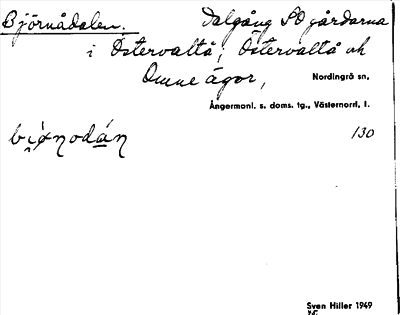 Björnådalen. Dalgång SO gårdarna
i Östervaltå, Östervaltå och
Omne ägor, Nordingrå sn,
Ångermanl. s. doms. tg., Västernorrl. l.
130
Sven Hiller 1949